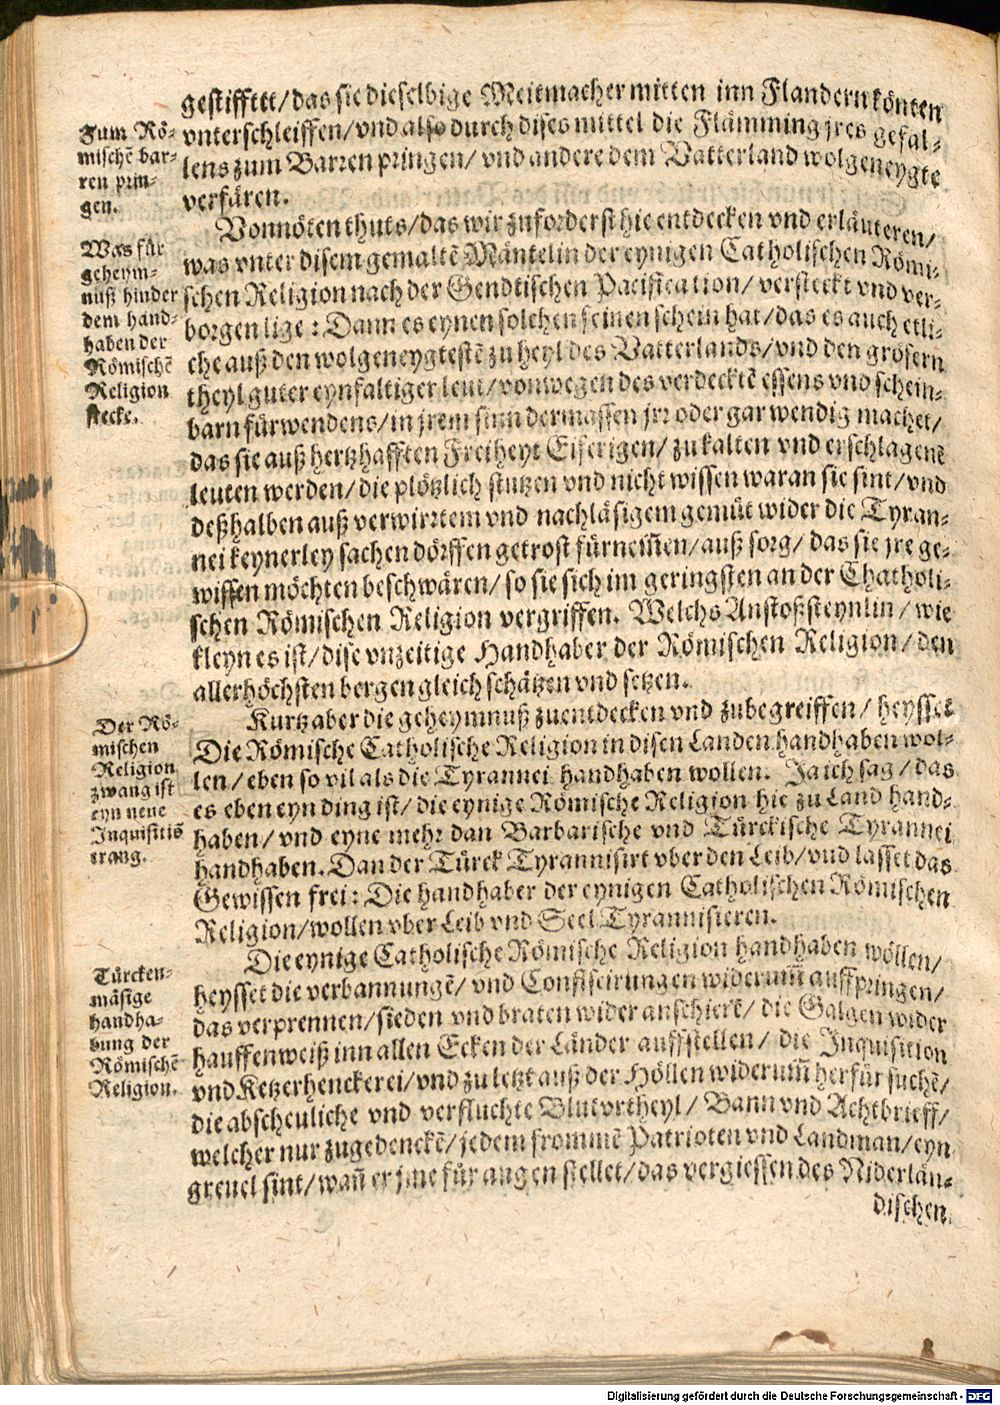 gestifftet/das sie dieselbige Meitmacher mitten inn Flandern könten
vnterschleiffen/vnd also durch dises mittel die Flämming jres gefal-
lens zum Barren pringen/ vnd andere dem Vatterland wolgeneygte
verfüren.
Zum Rö-
mischē bar-
ren prin-
gen.
Vonnöten thuts/das wir zuforderst hie entdecken vnd erläuteren/
was vnter disem gemaltē Mäntelin der eynigen Catholischen Römi-
schen Religion nach der Gendtischen Pacification/ versteckt vnd ver-
borgen lige: Dann es eynen solchen feinen schein hat/das es auch etli-
che auß den wolgeneygtestē zu heyl des Vatterlands/vnd den grösern
theyl guter eynfaltiger leut/vonwegen des verdecktē essens vnd schein-
barn fürwendens/in jrem sinn dermassen jrr oder gar wendig machet/
das sie auß hertzhafften Freiheyt Eiferigen/ zu kalten vnd erschlagenē
leuten werden/die plötzlich stutzen vnd nicht wissen waran sie sint/vnd
deßhalben auß verwirrtem vnd nachläsigem gemüt wider die Tyran-
nei keynerley sachen dörffen getrost fürnem̄en/auß sorg/ das sie jre ge-
wissen möchten beschwären/ so sie sich im geringsten an der Chatholi-
schen Römischen Religion vergriffen. Welchs Anstoßsteynlin/ wie
kleyn es ist/dise vnzeitige Handhaber der Römischen Religion/ den
allerhöchsten bergen gleich schätzen vnd setzen.
Was für
geheym-
nuß hinder
dem hand-
haben der
Römischē
Religion
stecke.
Kurtz aber die geheymnuß zuentdecken vnd zubegreiffen/ heysset
Die Römische Catholische Religion in disen Landen handhaben wol-
len/ eben so vil als die Tyrannei handhaben wollen. Ja ich sag/ das
es eben eyn ding ist/ die eynige Römische Religion hie zu Land hand-
haben/ vnd eyne mehr dan Barbarische vnd Türckische Tyrannei
handhaben. Dan der Türck Tyrannisirt vber den Leib/vnd lasset das
Gewissen frei: Die handhaber der eynigen Catholischen Römischen
Religion/wollen vber Leib vnd Seel Tyrannisieren.
Der Rö-
mischen
Religion
zwang ist
eyn neue
Inquisitiō
Die eynige Catholische Römische Religion handhaben wöllen/
heysset die verbannungē/ vnd Confiscirungen widerum̄ auffpringen/
das verprennen/sieden vnd braten wider anschierē/ die Galgen wider
hauffenweiß inn allen Ecken der Länder auffstellen/ die Inquisition
vnd Ketzerhenckerei/vnd zu letzt auß der Höllen widerum̄ herfür suchē/
die abscheuliche vnd verfluchte Bluturtheyl/ Bann vnd Achtbrieff/
welcher nur zugedenckē/ jedem frommē Patrioten vnd Landman/eyn
greuel sint/wan̄ er jme für augen stellet/das vergiessen des Niderlän-
dischen
Türcken-
mäsige
handha-
bung der
Römischē
Religion.
Digitalisierung gefördert durch die Deutsche Forschungsgemeinschaft - DFG